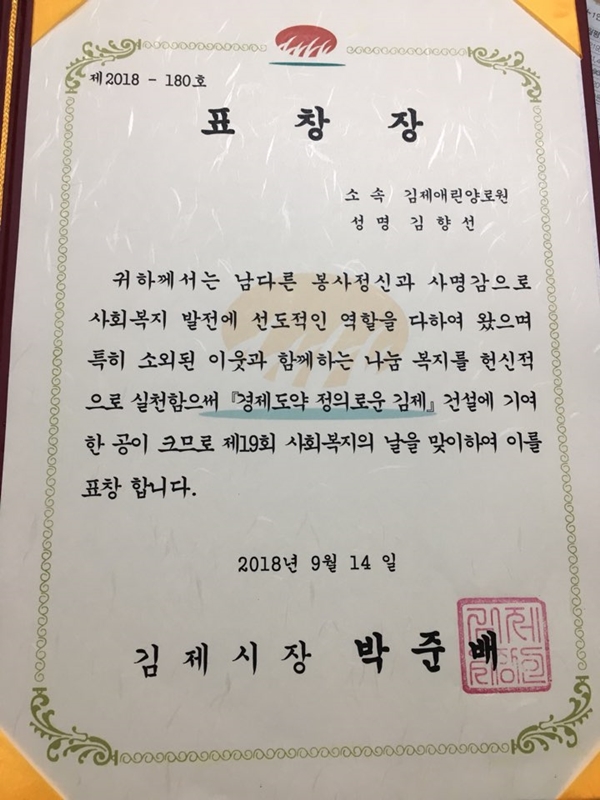 제2018 - 180호
표 창 장
소 속 김제애린양로원
성 명 김 향 선
귀하께서는 남다른 봉사정신과 사명감으로
사회복지 발전에 선도적인 역할을 다하여 왔으며
특히 소외된 이웃과 함께하는 나눔 복지를 헌신적
으로 실천함으로써 『경제도약 정의로운 김제』 건설에 기여
한 공이 크므로 제19회 사회복지의 날을 맞이하여 이를
표창 합니다.
2018년 9월 14 일
김 제 시 장 박 준 배